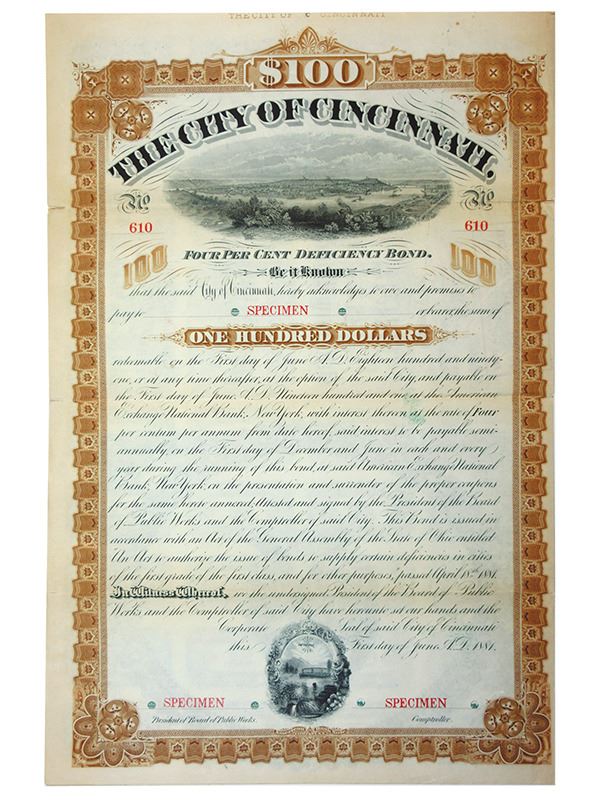 THE CITY OF CINCINNATI
$100
THE CITY OF CINCINNATI.
No No
610 610
FOUR PER CENT DEFICIENCY BOND.
100 Be it Known 100
that the said City of Cincinnati, hereby acknowledges to owe and promises
pay to SPECIMEN or bearer, the sum of
ONE HUNDRED DOLLARS
redeemable on the First day of June A.D. Eighteen hundred and ninety-
one, or at any time thereafter, at the option of the said City, and payable on
the First day of June A.D. Nineteen hundred and one, at the American
Exchange National Bank, New York, with interest thereon at the rate of Four
per centum per annum from date hereof, said interest to be payable semi-
annually, on the First day of December and June in each and every
year during the running of this bond, at said American Exchange National
Bank, New York, on the presentation and surrender of the proper coupons
for the same hereto annexed, Attested and signed by the President of the Board
of Public Works and the Comptroller of said City. This Bond is issued in
accordance with an Act of the General Assembly of the State of Ohio entitled
An Act to authorize the issue of bonds to supply certain deficiencies in cities
of the first grade of the first class, and for other purposes, passed April 18th 1881.
In Witness Whereof, we the undersigned President of the Board of Public
Works and the Comptroller of said City have hereunto set our hands and the
Corporate Seal of said City of Cincinnati
this First day of June, A.D. 1881.
SPECIMEN SPECIMEN
President of Board of Public Works. Comptroller.